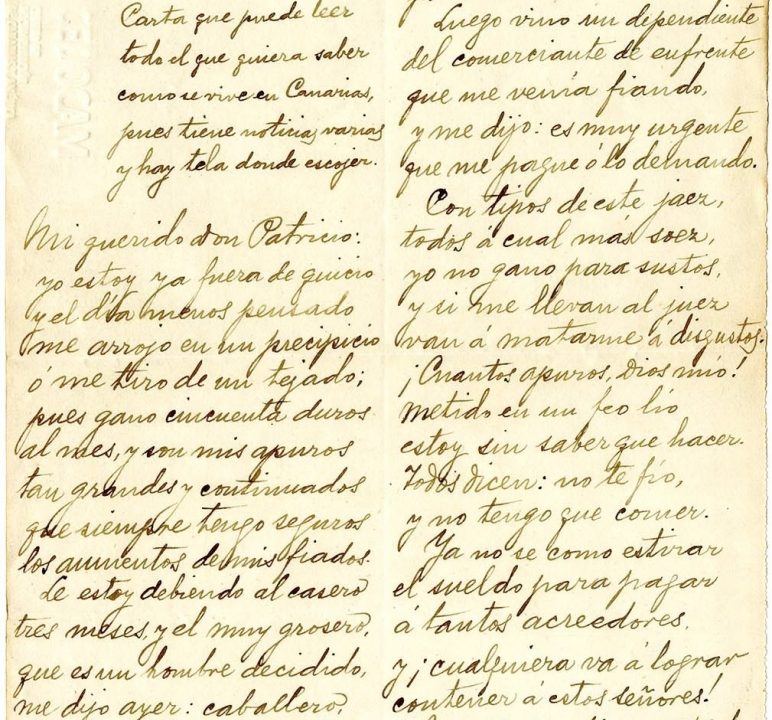 Carta que puede leer
todo el que quiera saber
como se vive en Canarias,
pues tiene noticias varias
y hay tela donde escojer.
Mi querido Don Patricio:
yo estoy ya fuera de quicio
y el día menos pensado
me arrojo en un precipicio
ó me tiro de un tejado;
pues gano cincuenta duros
al mes, y son mis apuros
tan grandes y continuados
que siempre tengo seguros
los aumentos de mis fiados.
Le estoy debiendo al casero
tres meses, y el muy grosero,
que es un hombre decidido,
me dijo ayer: caballero,
Luego vino un dependiente
del comerciante de enfrente
que me venía fiando,
y me dijo: es muy urgente
que me pague ó lo demando.
Con tipos de este jaez,
todos á cual más soez,
yo no gano para sustos,
y si me llevan al juez
van á matarme á disgustos.
¡Cuantos apuros, Dios mío!
Metido en un feo lío
estoy sin saber que hacer.
Todos dicen: no te fío,
y no tengo que comer.
Ya no se como estirar
el sueldo para pagar
á tantos acreedores,
y ¡cualquiera va á lograr
contener á estos señores!